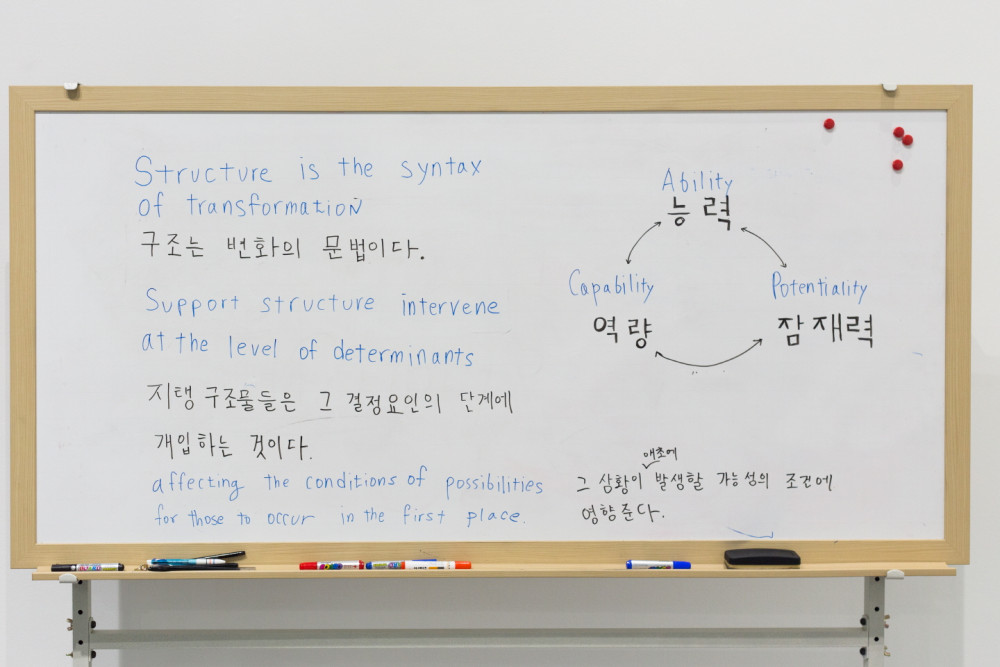 Structure is the syntax
of transformation
구조는 변화의 문법이다.
Support structure intervene
at the level of determinants
지탱 구조물들은 그 결정요인의 단계에
개입하는 것이다.
affecting the conditions of possibilities
for those to occur in the first place.
Ability
능력
Capability
역량
Potentiality
잠재력
애초에
그 상황이 발생할 가능성의 조건에
영향준다.